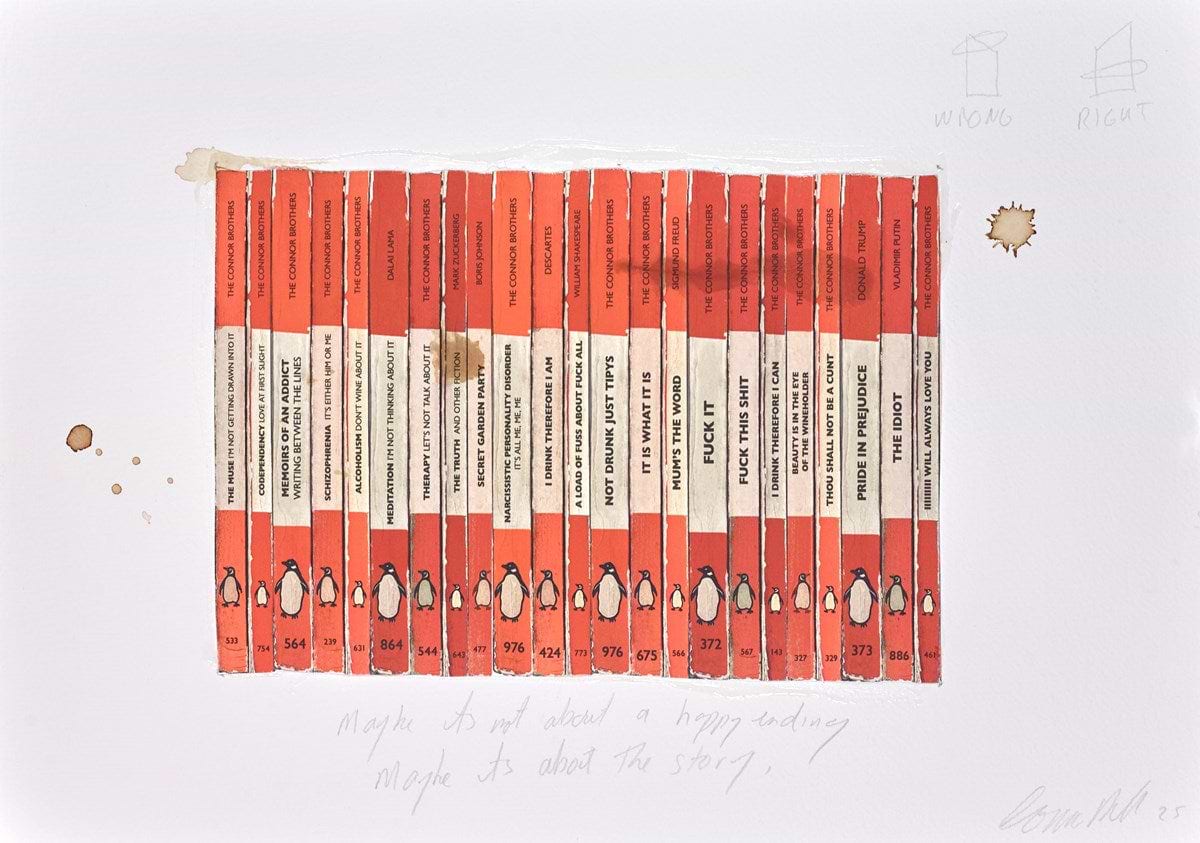 WRONG
RIGHT
THE CONNOR BROTHERS
THE MUSE I'M NOT GETTING DRAWN INTO IT
533
THE CONNOR BROTHERS
CODEPENDENCY LOVE AT FIRST SLIGHT
754
THE CONNOR BROTHERS
MEMOIRS OF AN ADDICT
WRITING BETWEEN THE LINES
564
THE CONNOR BROTHERS
SCHIZOPHRENIA IT'S EITHER HIM OR ME
239
THE CONNOR BROTHERS
ALCOHOLISM DON'T WINE ABOUT IT
631
DALAI LAMA
MEDITATION I'M NOT THINKING ABOUT IT
864
THE CONNOR BROTHERS
THERAPY LET'S NOT TALK ABOUT IT
544
MARK ZUCKERBERG
THE TRUTH AND OTHER FICTION
643
BORIS JOHNSON
SECRET GARDEN PARTY
477
THE CONNOR BROTHERS
NARCISSISTIC PERSONALITY DISORDER
IT'S ALL ME, ME, ME
976
DESCARTES
I DRINK THEREFORE I AM
424
WILLIAM SHAKESPEARE
A LOAD OF FUSS ABOUT FUCK ALL
773
THE CONNOR BROTHERS
NOT DRUNK JUST TIPYS
976
THE CONNOR BROTHERS
IT IS WHAT IT IS
675
SIGMUND FREUD
MUM'S THE WORD
566
THE CONNOR BROTHERS
FUCK IT
372
THE CONNOR BROTHERS
FUCK THIS SHIT
567
THE CONNOR BROTHERS
I DRINK THEREFORE I CAN
143
THE CONNOR BROTHERS
BEAUTY IS IN THE EYE
OF THE WINEHOLDER
327
THE CONNOR BROTHERS
THOU SHALL NOT BE A CUNT
329
DONALD TRUMP
PRIDE IN PREJUDICE
373
VLADIMIR PUTIN
THE IDIOT
886
THE CONNOR BROTHERS
WILL ALWAYS LOVE YOU
461
Maybe its not about a happy ending
Maybe its about the story.
25